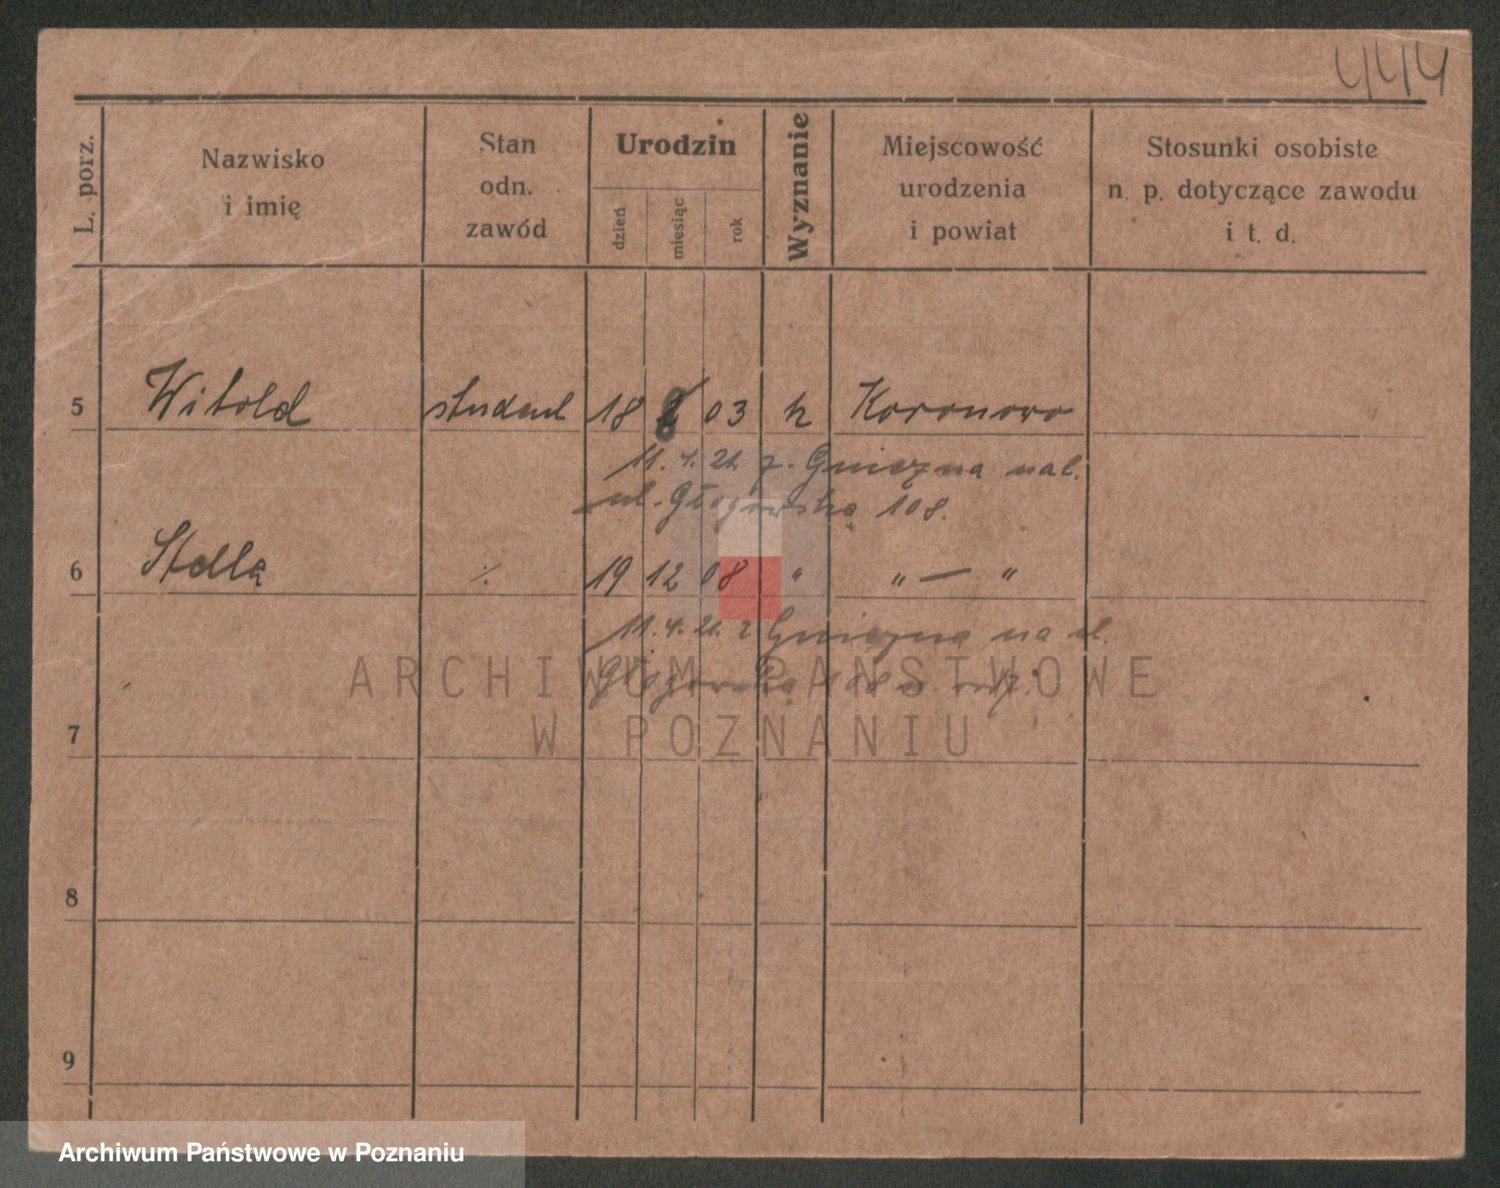 444
L. porz.
Nazwisko
i imię
Stan
odn.
zawód
Urodzin
dzień
miesiąc
rok
Wyznanie
Miejscowość
urodzenia
i powiat
Stosunki osobiste
n. p. dotyczące zawodu
i t. d.
5 Witold student 18 8 03 k Koronowo
11. 4. 21. z. Gniezna na ul.
ul. Głogowska 108.
6 Stella ·/. 19 12 08 " " — "
11. 4. 21. z Gniezna na ul.
Głogowska 108
ARCHIWUM PAŃSTWOWE
W POZNANIU
7
8
9
Archiwum Państwowe w Poznaniu